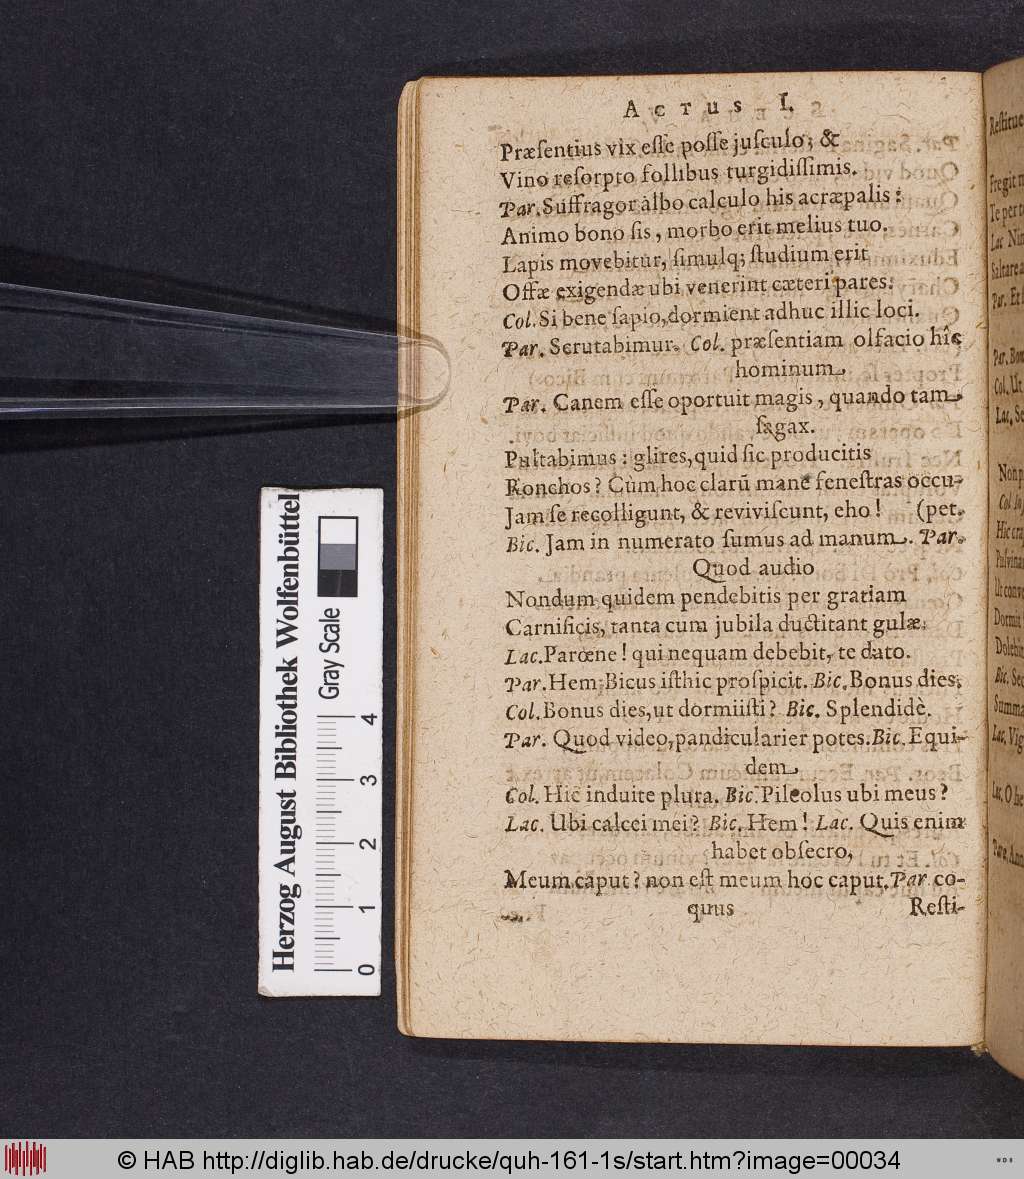 ACTUS I.
Præſentius vix eſſe poſſe juſculo; &
Vino reſorpto follibus turgidiſſimis.
Par. Suffragor albo calculo his acræpalis:
Animo bono ſis, morbo erit melius tuo.
Lapis movebitur, ſimulq; ſtudium erit
Offæ exigendæ ubi venerint cæteri pares.
Col. Si bene ſapio, dormient adhuc illic loci.
Par. Scrutabimur. Col. præſentiam olfacio hîc
hominum.
Par. Canem eſſe oportuit magis, quando tam
ſagax.
Pultabimus: glires, quid ſic producitis
Ronchos? Cùm hoc clarū mane feneſtras occu-
Jam ſe recolligunt, & reviviſcunt, eho! (pet.
Bic. Jam in numerato ſumus ad manum. Par.
Quod audio
Nondum quidem pendebitis per gratiam
Carnificis, tanta cum jubila ductitant gulæ.
Lac. Parœne! qui nequam debebit, te dato.
Par. Hem, Bicus iſthic proſpicit. Bic. Bonus dies.
Col. Bonus dies, ut dormiiſti? Bic. Splendidè.
Par. Quod video, pandicularier potes. Bic. Equi-
dem.
Col. Hic induite plura. Bic. Pileolus ubi meus?
Lac. Ubi calcei mei? Bic. Hem! Lac. Quis enim
habet obſecro,
Meum caput? non eſt meum hoc caput. Par. co-
quus Reſti-
Reſtitue
Fregit
Te per
Lac. Nim
Saltare
Par. Et
Par.
Col. Ut
Lac.
Non
Col.
Hic
Pulvina
Ut
Dormit
Bic.
Summa
Lac.
Lac. O
Herzog August Bibliothek Wolfenbüttel
Gray Scale
0 1 2 3 4
© HAB http://diglib.hab.de/drucke/quh-161-1s/start.htm?image=00034